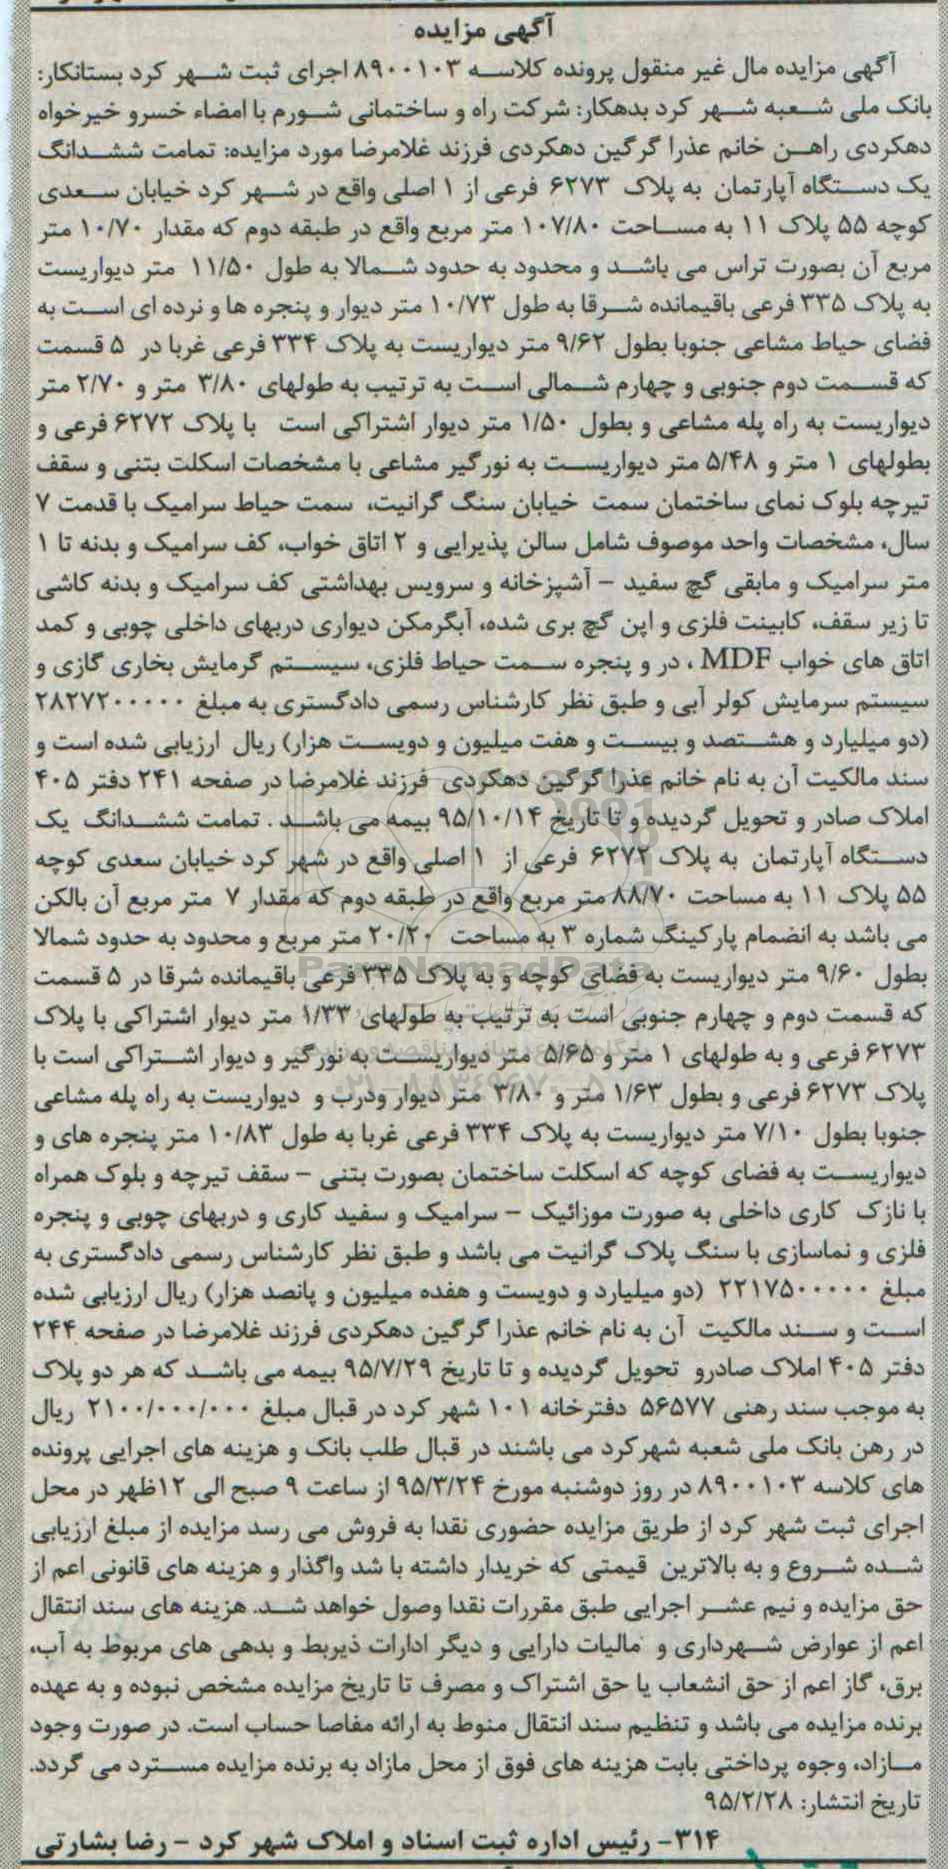 آگهی مزایده
آگهی مزایده مال غیر منقول پرونده کلاسه ۸۹۰۰۱۰۳ اجرای ثبت شهر کرد بستانکار:
بانک ملی شعبه شهر کرد بدهکار: شرکت راه و ساختمانی شورم با امضاء خسرو خیرخواه
دهکردی راهن خانم عذرا گرگین دهکردی فرزند غلامرضا مورد مزایده: تمامت ششدانگ
یک دستگاه آپارتمان به پلاک ۶۲۷۳ فرعی از ۱ اصلی واقع در شهر کرد خیابان سعدی
کوچه ۵۵ پلاک ۱۱ به مساحت ۱۰۷/۸۰ متر مربع واقع در طبقه دوم که مقدار ۱۰/۷۰ متر
مربع آن بصورت تراس می باشد و محدود به حدود شمالا به طول ۱۱/۵۰ متر دیواریست
به پلاک ۳۳۵ فرعی باقیمانده شرقا به طول ۱۰/۷۳ متر دیوار و پنجره ها و نرده ای است به
فضای حیاط مشاعی جنوبا بطول ۹/۶۲ متر دیواریست به پلاک ۳۳۴ فرعی غربا در ۵ قسمت
که قسمت دوم جنوبی و چهارم شمالی است به ترتیب به طولهای ۳/۸۰ متر و ۲/۷۰ متر
دیواریست به راه پله مشاعی و بطول ۱/۵۰ متر دیوار اشتراکی است با پلاک ۶۲۷۲ فرعی و
بطولهای ۱ متر و ۵/۴۸ متر دیواریست به نورگیر مشاعی با مشخصات اسکلت بتنی و سقف
تیرچه بلوک نمای ساختمان سمت خیابان سنگ گرانیت، سمت حیاط سرامیک با قدمت ۷
سال، مشخصات واحد موصوف شامل سالن پذیرایی و ۲ اتاق خواب، کف سرامیک و بدنه تا ۱
متر سرامیک و مابقی گچ سفید - آشپزخانه و سرویس بهداشتی کف سرامیک و بدنه کاشی
تا زیر سقف، کابینت فلزی و اپن گچ بری شده، آبگرمکن دیواری دربهای داخلی چوبی و کمد
اتاق های خواب MDF ، در و پنجره سمت حیاط فلزی، سیستم گرمایش بخاری گازی و
سیستم سرمایش کولر آبی و طبق نظر کارشناس رسمی دادگستری به مبلغ ۲۸۲۷۲۰۰۰۰۰
(دو میلیارد و هشتصد و بیست و هفت میلیون و دویست هزار) ریال ارزیابی شده است و
سند مالکیت آن به نام خانم عذرا گرگین دهکردی فرزند غلامرضا در صفحه ۲۴۱ دفتر ۴۰۵
املاک صادر و تحویل گردیده و تا تاریخ ۹۵/۱۰/۱۴ بیمه می باشد . تمامت ششدانگ یک
دستگاه آپارتمان به پلاک ۶۲۷۲ فرعی از ۱ اصلی واقع در شهر کرد خیابان سعدی کوچه
۵۵ پلاک ۱۱ به مساحت ۸۸/۷۰ متر مربع واقع در طبقه دوم که مقدار ۷ متر مربع آن بالکن
می باشد به انضمام پارکینگ شماره ۳ به مساحت ۲۰/۲۰ متر مربع و محدود به حدود شمالا
بطول ۹/۶۰ متر دیواریست به فضای کوچه و به پلاک ۳۳۵ فرعی باقیمانده شرقا در ۵ قسمت
که قسمت دوم و چهارم جنوبی است به ترتیب به طولهای ۱/۳۳ متر دیوار اشتراکی با پلاک
۶۲۷۳ فرعی و به طولهای ۱ متر و ۵/۶۵ متر دیواریست به نورگیر و دیوار اشتراکی است با
پلاک ۶۲۷۳ فرعی و بطول ۱/۶۳ متر و ۳/۸۰ متر دیوار ودرب و دیواریست به راه پله مشاعی
جنوبا بطول ۷/۱۰ متر دیواریست به پلاک ۳۳۴ فرعی غربا به طول ۱۰/۸۳ متر پنجره های و
دیواریست به فضای کوچه که اسکلت ساختمان بصورت بتنی - سقف تیرچه و بلوک همراه
با نازک کاری داخلی به صورت موزائیک - سرامیک و سفید کاری و دربهای چوبی و پنجره
فلزی و نماسازی با سنگ پلاک گرانیت می باشد و طبق نظر کارشناس رسمی دادگستری به
مبلغ ۲۲۱۷۵۰۰۰۰۰ (دو میلیارد و دویست و هفده میلیون و پانصد هزار) ریال ارزیابی شده
است و سند مالکیت آن به نام خانم عذرا گرگین دهکردی فرزند غلامرضا در صفحه ۲۴۴
دفتر ۴۰۵ املاک صادرو تحویل گردیده و تا تاریخ ۹۵/۷/۲۹ بیمه می باشد که هر دو پلاک
به موجب سند رهنی ۵۶۵۷۷ دفترخانه ۱۰۱ شهر کرد در قبال مبلغ ۲۱۰۰/۰۰۰/۰۰۰ ریال
در رهن بانک ملی شعبه شهرکرد می باشند در قبال طلب بانک و هزینه های اجرایی پرونده
های کلاسه ۸۹۰۰۱۰۳ در روز دوشنبه مورخ ۹۵/۳/۲۴ از ساعت ۹ صبح الی ۱۲ظهر در محل
اجرای ثبت شهر کرد از طریق مزایده حضوری نقدا به فروش می رسد مزایده از مبلغ ارزیابی
شده شروع و به بالاترین قیمتی که خریدار داشته با شد واگذار و هزینه های قانونی اعم از
حق مزایده و نیم عشر اجرایی طبق مقررات نقدا وصول خواهد شد. هزینه های سند انتقال
اعم از عوارض شهرداری و مالیات دارایی و دیگر ادارات ذیربط و بدهی های مربوط به آب،
برق، گاز اعم از حق انشعاب یا حق اشتراک و مصرف تا تاریخ مزایده مشخص نبوده و به عهده
برنده مزایده می باشد و تنظیم سند انتقال منوط به ارائه مفاصا حساب است. در صورت وجود
مازاد، وجوه پرداختی بابت هزینه های فوق از محل مازاد به برنده مزایده مسترد می گردد.
تاریخ انتشار: ۹۵/۲/۲۸
۳۱۴- رئیس اداره ثبت اسناد و املاک شهر کرد - رضا بشارتی